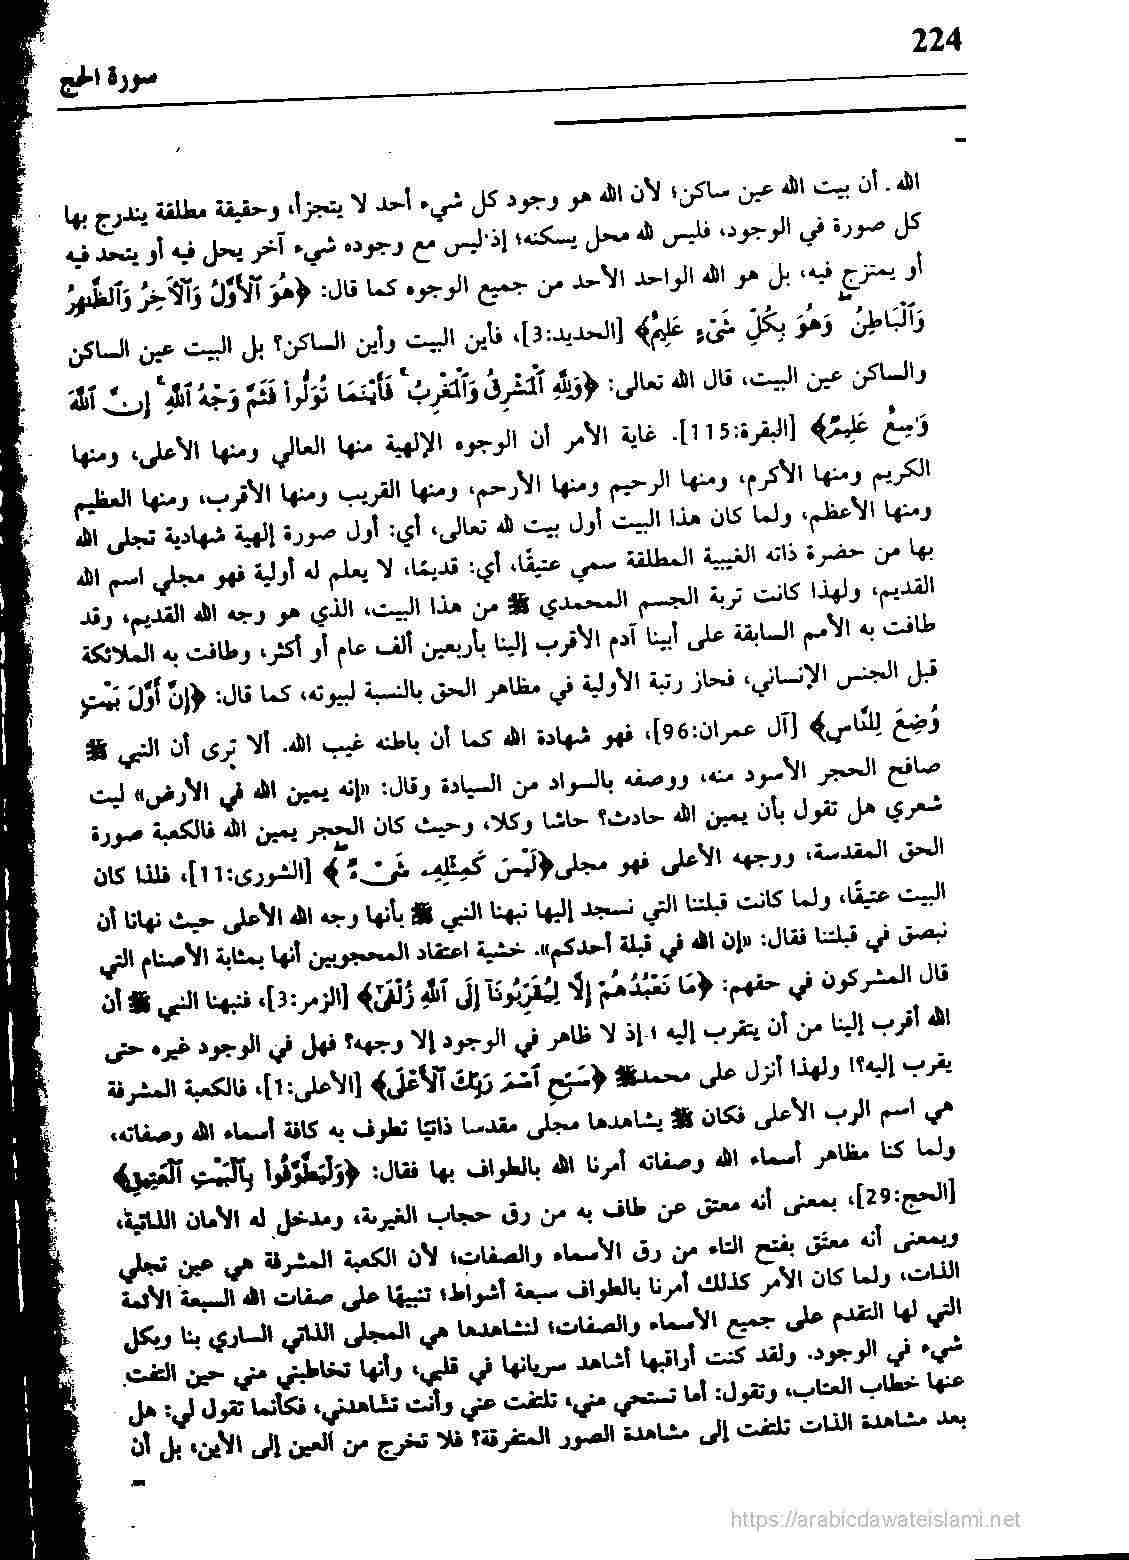 224
سورة الحج
الله. أن بيت الله عين ساكن؛ لأن الله هو وجود كل شيء أحد لا يتجزأ، وحقيقة مطلقة يندرج بها
كل صورة في الوجود، فليس لله محل يسكنه؛ إذ ليس مع وجوده شيء آخر يحل فيه أو يتحد فيه
أو يمتزج فيه، بل هو الله الواحد الأحد من جميع الوجوه كما قال: ﴿هُوَ ٱلْأَوَّلُ وَٱلْأَخِرُ وَٱلظَّٰهِرُ
وَٱلْبَاطِنُ ۖ وَهُوَ بِكُلِّ شَىْءٍ عَلِيمٌ﴾ [الحديد:3]، فأين البيت وأين الساكن؟ بل البيت عين الساكن
والساكن عين البيت، قال الله تعالى: ﴿وَلِلَّهِ ٱلْمَشْرِقُ وَٱلْمَغْرِبُ ۚ فَأَيْنَمَا تُوَلُّوا۟ فَثَمَّ وَجْهُ ٱللَّهِ ۚ إِنَّ ٱللَّهَ
وَٰسِعٌ عَلِيمٌ﴾ [البقرة:115]. غاية الأمر أن الوجوه الإلهية منها العالي ومنها الأعلى، ومنها
الكريم ومنها الأكرم، ومنها الرحيم ومنها الأرحم، ومنها القريب ومنها الأقرب، ومنها العظيم
ومنها الأعظم، ولما كان هذا البيت أول بيت لله تعالى، أي: أول صورة إلهية شهادية تجلى الله
بها من حضرة ذاته الغيبية المطلقة سمي عتيقًا، أي: قديمًا، لا يعلم له أولية فهو مجلي اسم الله
القديم، ولهذا كانت تربة الجسم المحمدي ﷺ من هذا البيت، الذي هو وجه الله القديم، وقد
طافت به الأمم السابقة على أبينا آدم الأقرب إلينا بأربعين ألف عام أو أكثر، وطافت به الملائكة
قبل الجنس الإنساني، فحاز رتبة الأولية في مظاهر الحق بالنسبة لبيوته، كما قال: ﴿إِنَّ أَوَّلَ بَيْتٍ
وُضِعَ لِلنَّاسِ﴾ [آل عمران:96]، فهو شهادة الله كما أن باطنه غيب الله. ألا ترى أن النبي ﷺ
صافح الحجر الأسود منه، ووصفه بالسواد من السيادة وقال: «إنه يمين الله في الأرض» ليت
شعري هل تقول بأن يمين الله حادث؟ حاشا وكلا، وحيث كان الحجر يمين الله فالكعبة صورة
الحق المقدسة، ووجهه الأعلى فهو مجلى ﴿لَيْسَ كَمِثْلِهِۦ شَىْءٌ ۖ﴾ [الشورى:11]، فلذا كان
البيت عتيقًا، ولما كانت قبلتنا التي نسجد إليها نبهنا النبي ﷺ بأنها وجه الله الأعلى حيث نهانا أن
نبصق في قبلتنا فقال: «إن الله في قبلة أحدكم». خشية اعتقاد المحجوبين أنها بمثابة الأصنام التي
قال المشركون في حقهم: ﴿مَا نَعْبُدُهُمْ إِلَّا لِيُقَرِّبُونَآ إِلَى ٱللَّهِ زُلْفَىٰٓ﴾ [الزمر:3]، فنبهنا النبي ﷺ أن
الله أقرب إلينا من أن يتقرب إليه ؛ إذ لا ظاهر في الوجود إلا وجهه؟ فهل في الوجود غيره حتى
يقرب إليه؟! ولهذا أنزل على محمدﷺ ﴿سَبِّحِ ٱسْمَ رَبِّكَ ٱلْأَعْلَى﴾ [الأعلى:1]، فالكعبة المشرفة
هي اسم الرب الأعلى فكان ﷺ يشاهدها مجلى مقدسا ذاتيًا تطوف به كافة أسماء الله وصفاته،
ولما كنا مظاهر أسماء الله وصفاته أمرنا الله بالطواف بها فقال: ﴿وَلْيَطَّوَّفُوا۟ بِٱلْبَيْتِ ٱلْعَتِيقِ﴾
[الحج:29]، بمعنى أنه معتق عن طاف به من رق حجاب الغيرية، ومدخل له الأمان الذاتية،
وبمعنى أنه معتَق بفتح التاء من رق الأسماء والصفات؛ لأن الكعبة المشرفة هي عين تجلي
الذات، ولما كان الأمر كذلك أمرنا بالطواف سبعة أشواط؛ تنبيهًا على صفات الله السبعة الأئمة
التي لها التقدم على جميع الأسماء والصفات؛ لنشاهدها هي المجلى الذاتي الساري بنا وبكل
شيء في الوجود. ولقد كنت أراقبها أشاهد سريانها في قلبي، وأنها تخاطبني مني حين التفت
عنها خطاب العتاب، وتقول: أما تستحي مني، تلتفت عني وأنت تشاهدني، فكأنما تقول لي: هل
بعد مشاهدة الذات تلتفت إلى مشاهدة الصور المتفرقة؟ فلا تخرج من العين إلى الأين، بل أن
https://arabicdawateislami.net